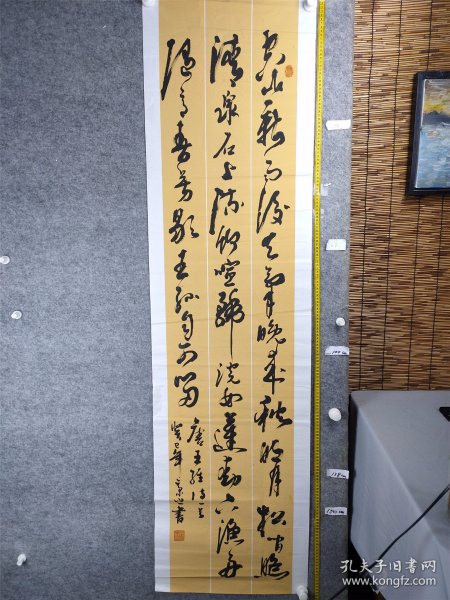 空山新雨後天氣晚來秋明月松間照
清泉石上流竹喧歸浣女蓮動下漁舟
隨意春芳歇王孫自可留
唐王維诗一首
癸巳年書
孔夫子旧书网
www.kongfz.com